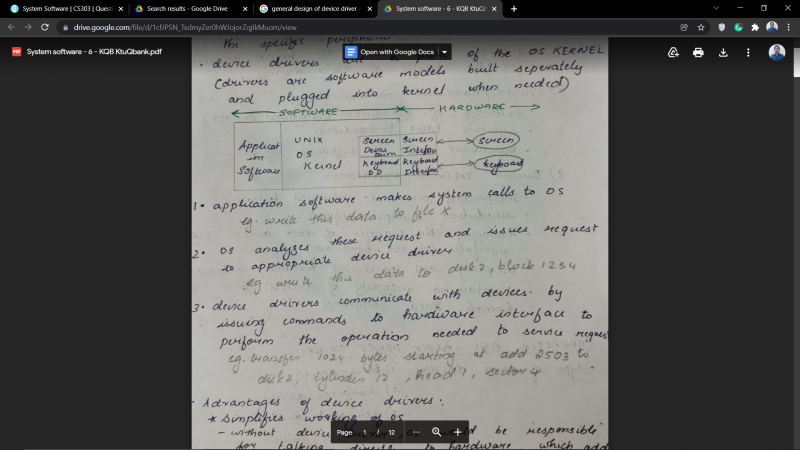 System Software | CS303 | Questi
Search results - Google Drive
general design of device driver -
System software - 6 - KQB KtuQb
drive.google.com/file/d/1cfJPSN_TxdmyZer0hWJojorZqjlkMuom/view
System software - 6 - KQB KtuQbank.pdf
Open with Google Docs
the specific
device drivers are a of the OS KERNEL
(drivers are software models built seperately
and plugged into kernel when needed)
SOFTWARE HARDWARE
Applicat
ion
Software
UNIX
OS
Kernel
Screen
Keyboard
D.D
Screen
Keyboard
screen
keyboard
1. application software makes system calls to OS
eg. write this data to file X
2. OS analyzes these request and issues request
to appropriate device driver
eg write this data to disk 2, block 1234
3. device drivers communicate with devices by
issuing commands to hardware interface to
perform the operation needed to service request
eg. transfer 1024 bytes starting at add 2503 to
disk 2, cylinder 12, head 1, sector 4
Advantages of device drivers:
* Simplifies working of OS
- without device OS would be responsible
for talking directly to hardware which add
Page 1 / 12